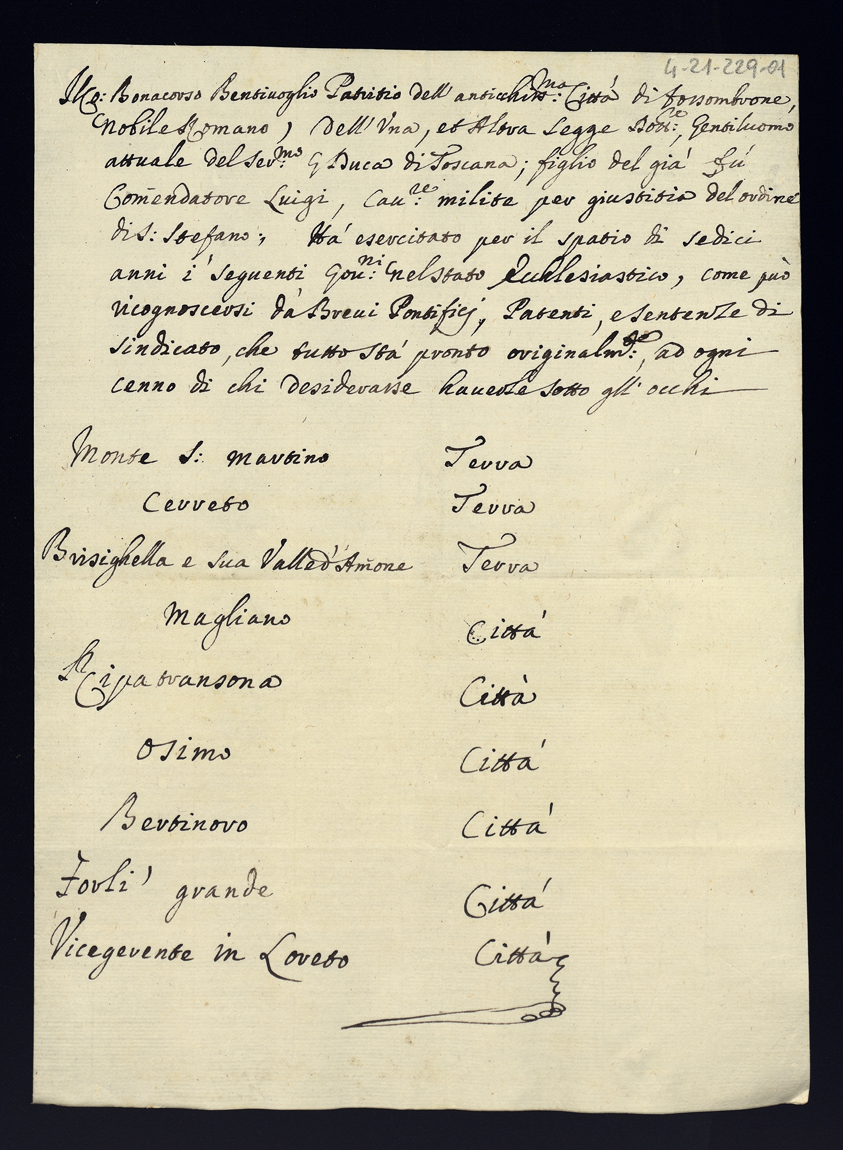 4-21-229-01
Bonacorso Bentivoglio Patritio dell'antichiss:ma Città di Fossombrone,
Nobile Romano, dell'Una, et Altra Legge Dott:re, Gentiluomo
attuale del Ser:mo G Duca di Toscana; figlio del già fù
Com̃endatore Luigi, Cau:re milite per giustitia del ordine
di S: Stefano; Hà esercitato per il spatio di sedici
anni i seguenti Gou:ni nel Stato Ecclesiastico, come può
ricognoscersi dà Breui Pontificj, Patenti, e sentenze di
sindicato, che tutto stà pronto originalm:te, ad ogni
cenno di chi desiderasse hauerle sotto gl'occhi
Monte S: Martino Terra
Cerreto Terra
Brisighella e sua Valle d'Am̃one Terra
Magliano Città
Ripatransona Città
Osimo Città
Bertinoro Città
Forlì grande Città
Vicegerente in Loreto Città